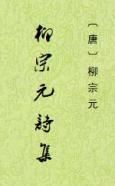 〔唐〕柳宗元
柳宗元詩集